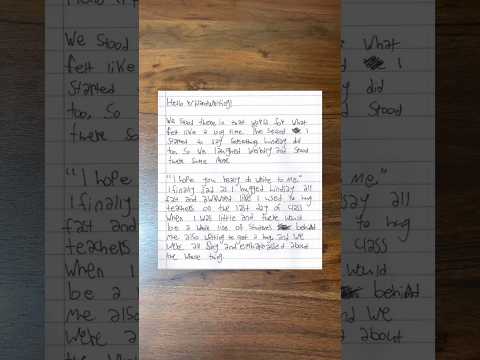 Hello r/Handwriting!
We stood there in that for what
felt like a long time. The second I
started to say something Lindsay did
too, so we laughed weirdly and stood
there some more.
"I hope you really do write to me,"
I finally said as I hugged Lindsay all
fast and awkward like I used to hug
teachers on the last day of class
when I was little and there would
be a whole line of students behind
me also waiting to get a hug, and we
were all shy and embarrassed about
the whole thing.